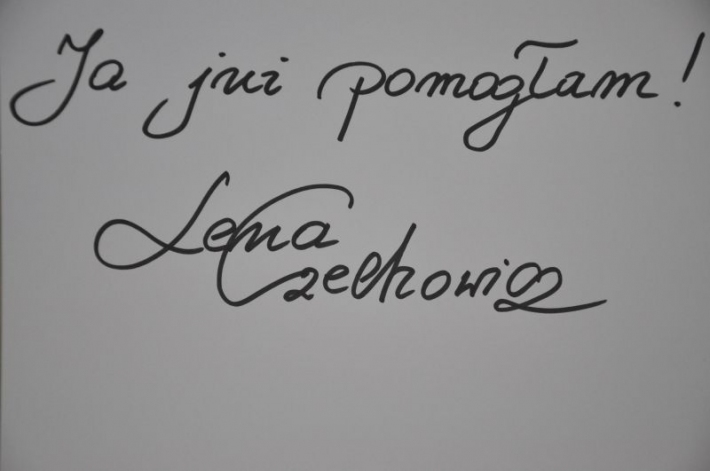 Ja już pomogłam!
Lena
Czelkowicz